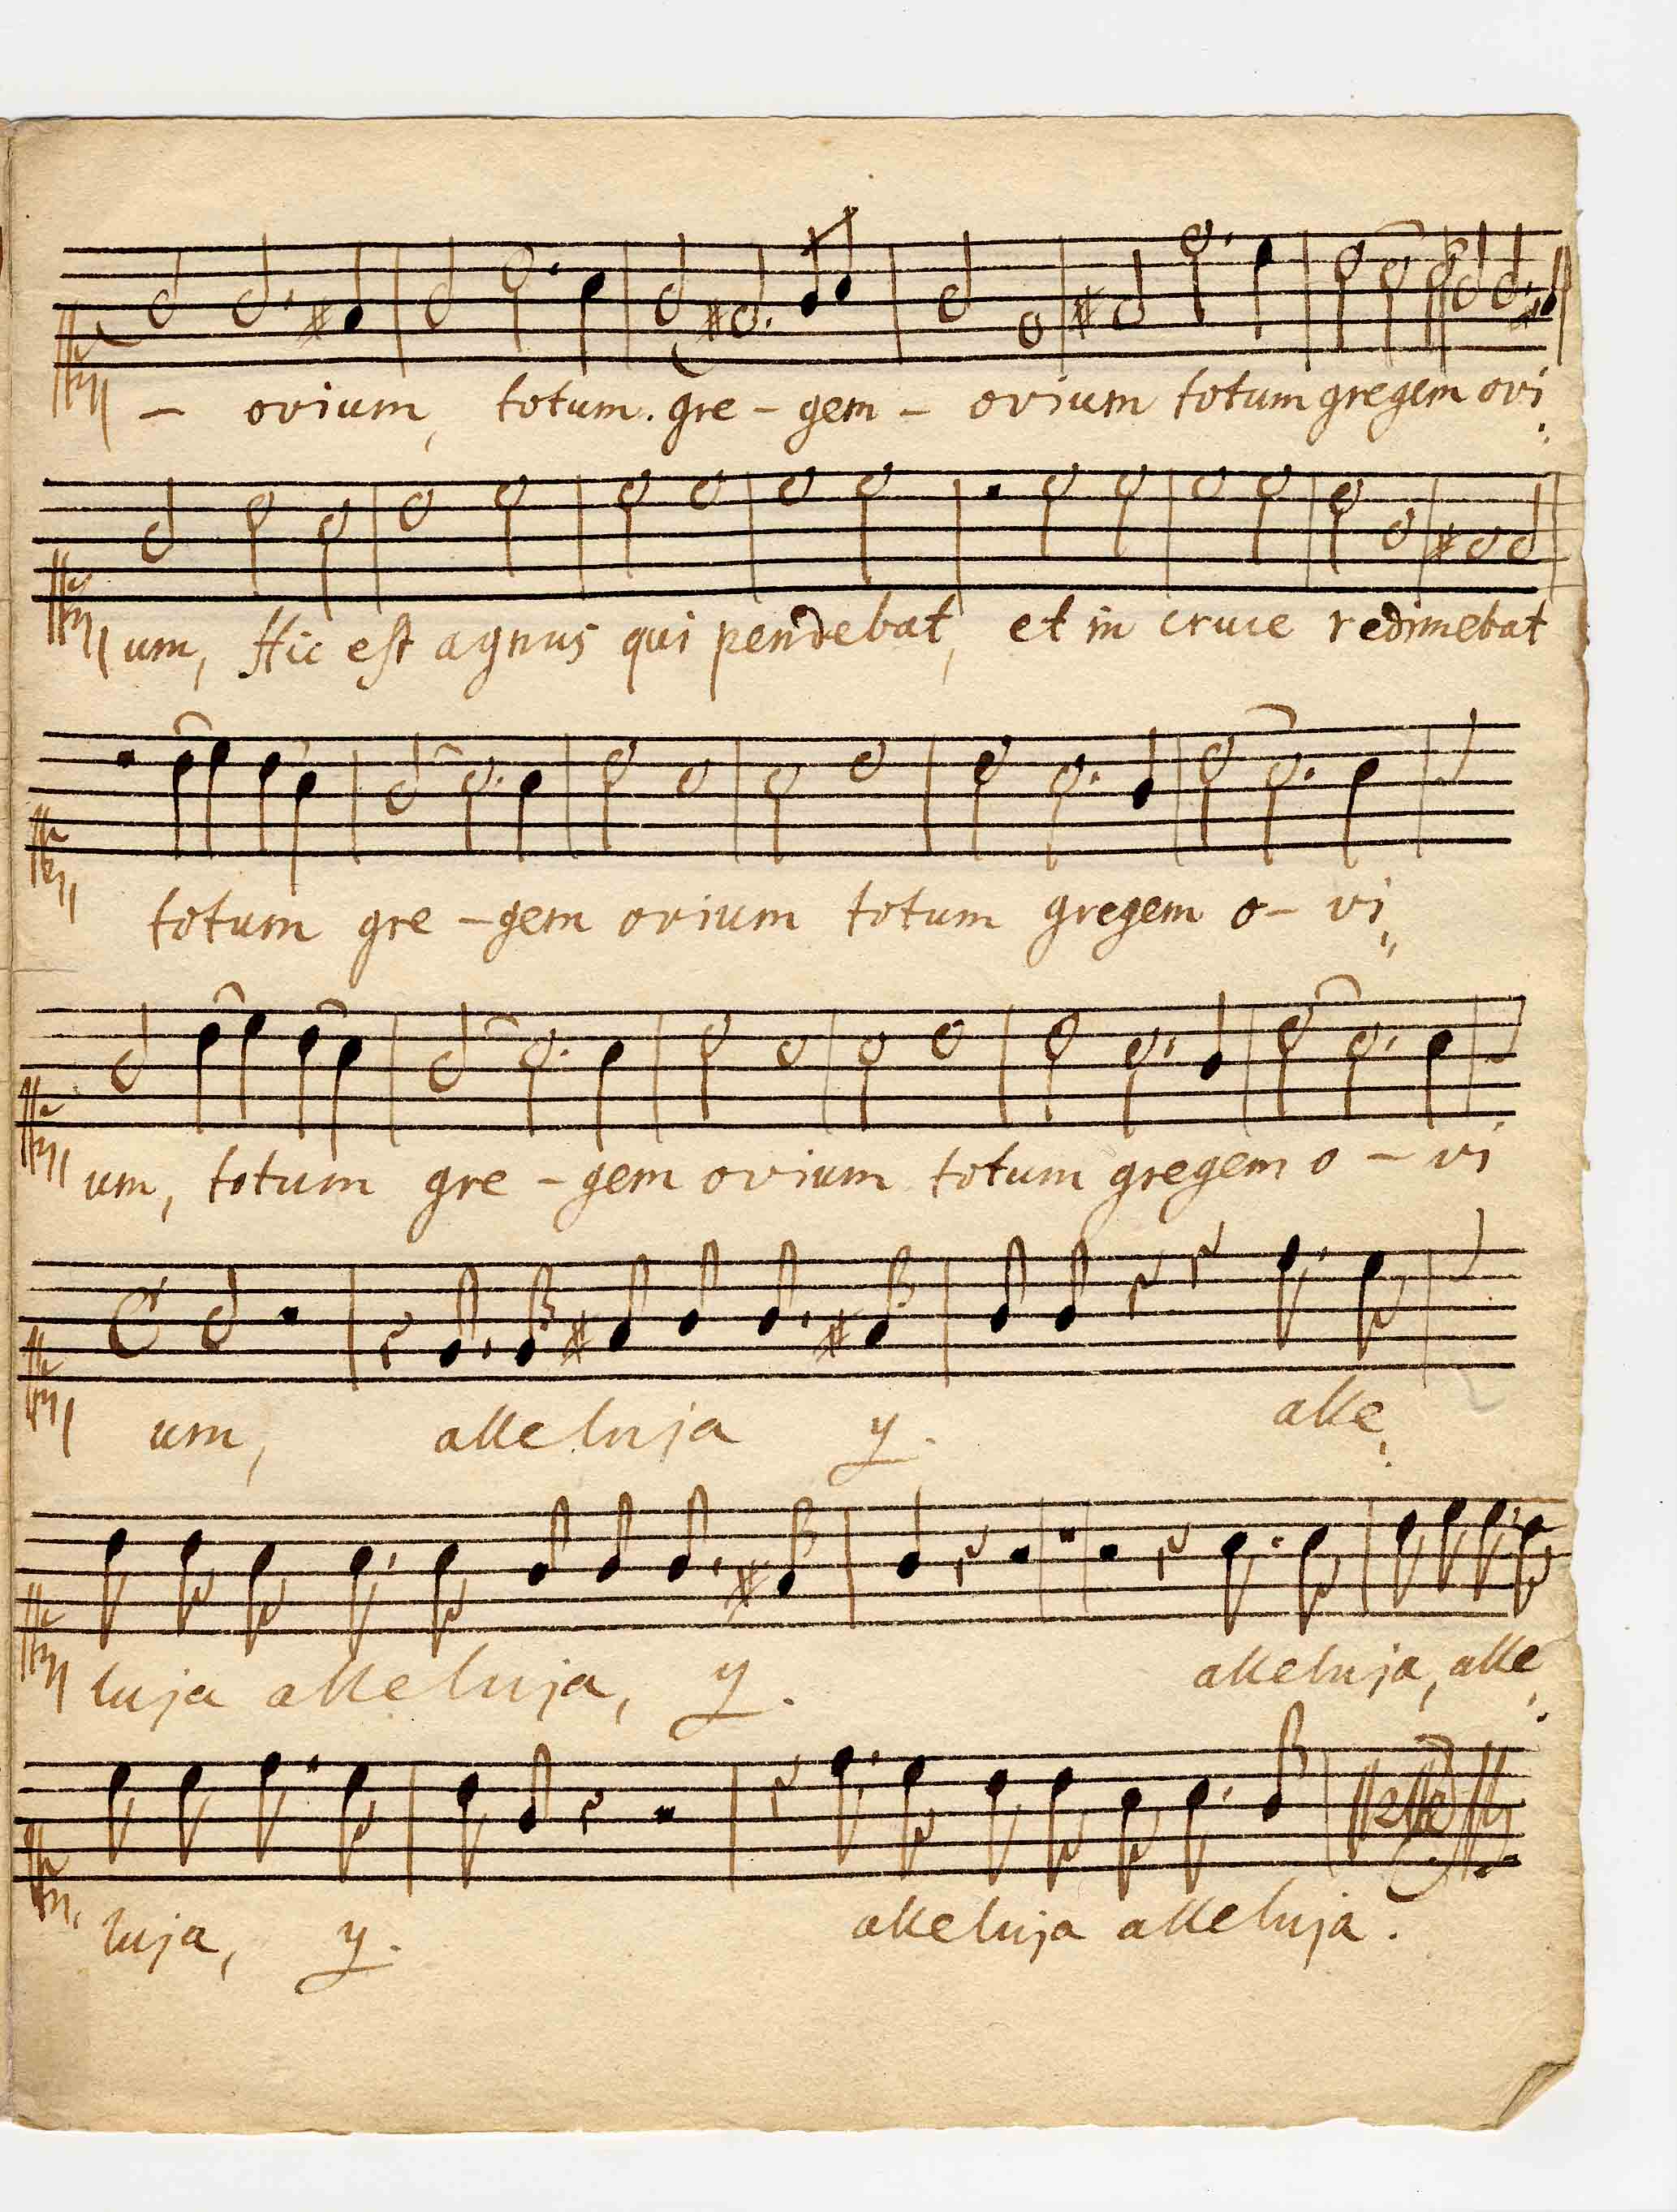 – ovium, totum gre – gem – ovium totum gregem ovi
um, Hic est agnus qui pendebat, et in cruce redimebat
totum gre – gem ovium totum gregem o – vi
um, totum gre – gem ovium totum gregem o – vi
um, alleluja y. alle
luja alleluja, y. alleluja, alle
luja, y. alleluja alleluja.